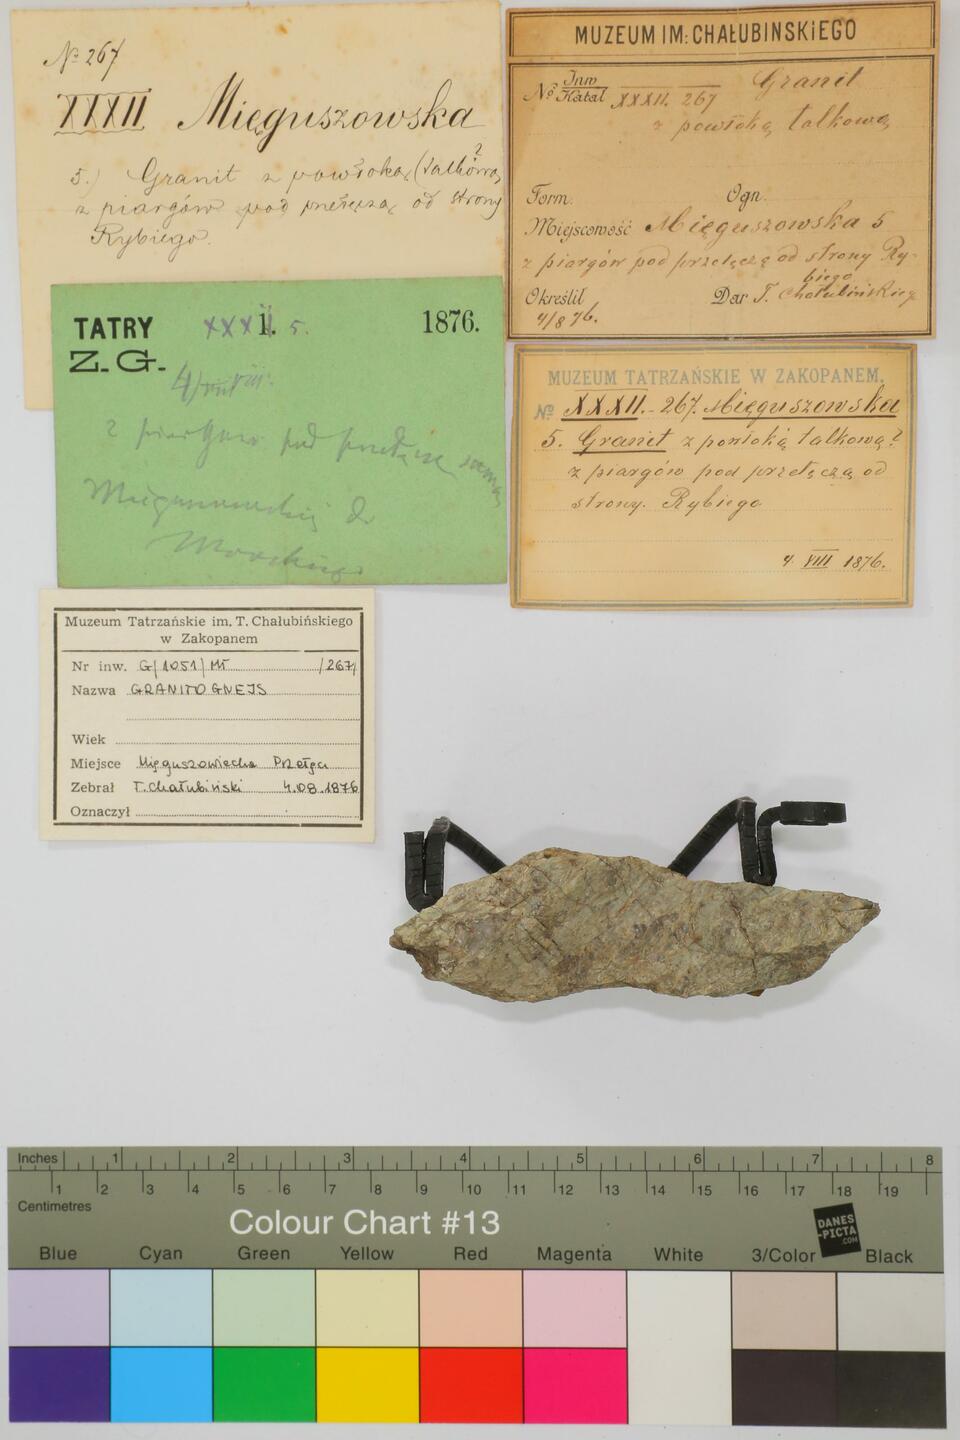 № 267
XXXII Mięguszowska
5.) Granit z powłoką (talkową?
z piargów pod przełęczą od strony
Rybiego.
MUZEUM IM: CHAŁUBINSKIEGO
№ Inw Katal XXXII. 267 Granit
z powłoką talkową
Form. Ogn.
Miejscowość Mięguszowska 5
z piargów pod przełęczą od strony Ry-
biego
Określił Dar T. Chałubińskieg
4/8 76.
TATRY XXXII. 5. 1876.
Z. G.
4/VIII.
z piargów pod przełęczą
Mięguszowską do
Morskiego
MUZEUM TATRZAŃSKIE W ZAKOPANEM.
№ XXXII.-267. Mięguszowska
5. Granit z powłoką talkową?
z piargów pod przełęczą od
strony. Rybiego
4 VIII 1876.
Muzeum Tatrzańskie im. T. Chałubińskiego
w Zakopanem
Nr inw. G/1051/MT /267/
Nazwa GRANITOGNEJS
Wiek
Miejsce Mięguszowiecka Przełęcz
Zebrał T. Chałubiński 4.08.1876
Oznaczył
Inches 1 2 3 4 5 6 7 8
1 2 3 4 5 6 7 8 9 10 11 12 13 14 15 16 17 18 19
Centimetres
Colour Chart #13
DANES
-PICTA
.COM
Blue Cyan Green Yellow Red Magenta White 3/Color Black